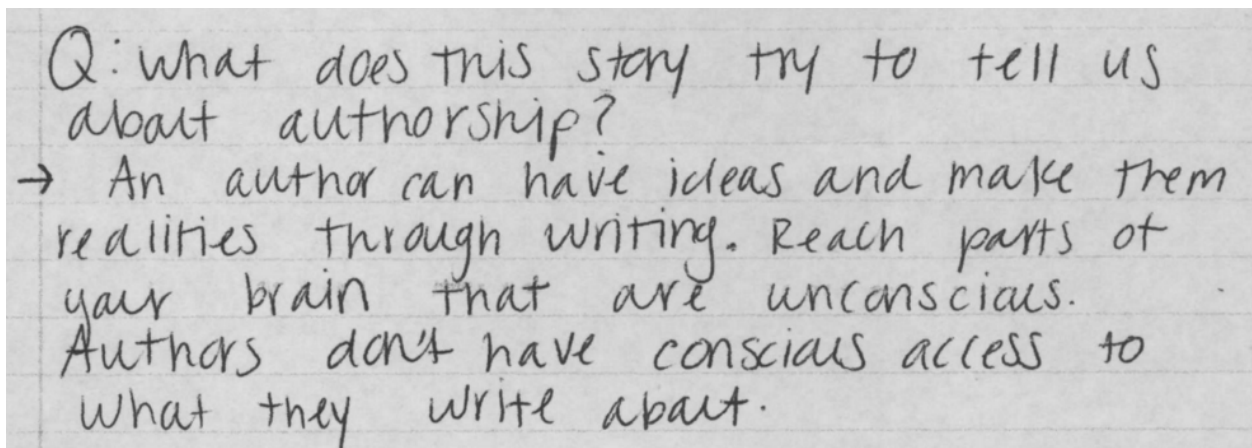 Q: What does this story try to tell us
about authorship?
→ An author can have ideas and make them
realities through writing. Reach parts of
your brain that are unconscious.
Authors don't have conscious access to
what they write about.